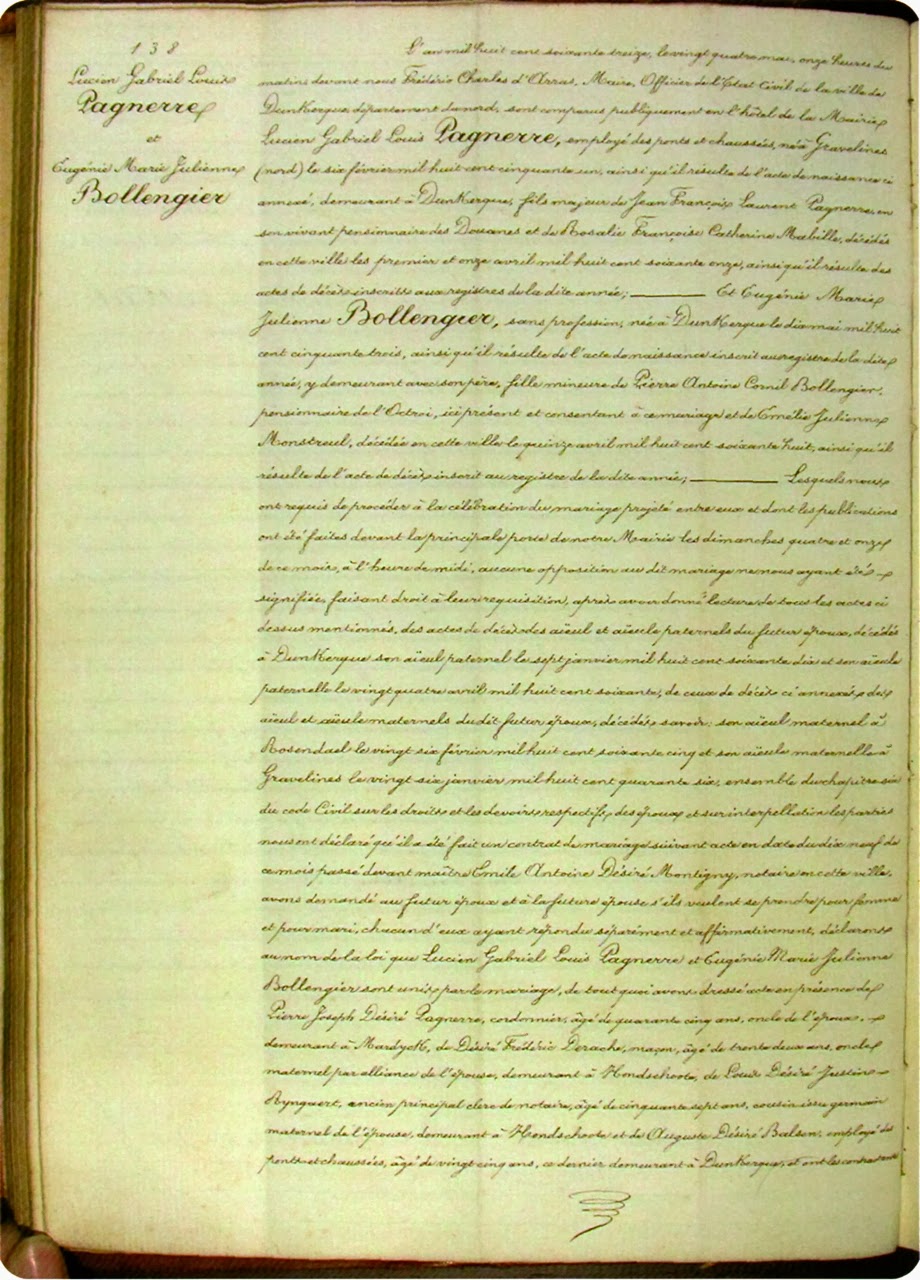 138
Lucien Gabriel Louis
Pagnerre
et
Eugénie Marie Julienne
Bollengier
L'an mil huit cent soixante treize, le vingt quatre mai, onze heures du
matin, devant nous Frédéric Charles d'Arras, Maire, Officier de l'Etat Civil de la ville de
Dunkerque, département du nord, sont comparus publiquement en l'hôtel de la Mairie
Lucien Gabriel Louis Pagnerre, employé des ponts et chaussées, né à Gravelines
(nord) le six février mil huit cent cinquante un, ainsi qu'il résulte de l'acte de naissance ci
annexé, demeurant à Dunkerque, fils majeur de Jean François Laurent Pagnerre, en
son vivant pensionnaire des Douanes et de Rosalie Françoise Catherine Mabille, décédés
en cette ville les premier et onze avril mil huit cent soixante onze, ainsi qu'il résulte des
actes de décès inscrits aux registres de la dite année; Et Eugénie Marie
Julienne Bollengier, sans profession, née à Dunkerque le dix mai mil huit
cent cinquante trois, ainsi qu'il résulte de l'acte de naissance inscrit au registre de la dite
année, y demeurant avec son père, fille mineure de Pierre Antoine Cornil Bollengier,
pensionnaire de l'Octroi, ici présent et consentant à ce mariage et de Emélie Julienne
Monstreul, décédée en cette ville le quinze avril mil huit cent soixante huit, ainsi qu'il
résulte de l'acte de décès inscrit au registre de la dite année; Lesquels nous
ont requis de procéder à la célébration du mariage projeté entre eux et dont les publications
ont été faites devant la principale porte de notre Mairie les dimanches quatre et onze
de ce mois, à l'heure de midi, aucune opposition au dit mariage ne nous ayant été
signifiée, faisant droit à leur requisition, après avoir donné lecture de tous les actes ci
dessus mentionnés, des actes de décès des aïeul et aïeule paternels du futur époux, décédés
à Dunkerque son aïeul paternel le sept janvier mil huit cent soixante dix et son aïeule
paternelle le vingt quatre avril mil huit cent soixante, de ceux de décès ci annexés des
aïeul et aïeule maternels du dit futur époux, décédés savoir: son aïeul maternel à
Rosendael le vingt six février mil huit cent soixante cinq et son aïeule maternelle à
Gravelines le vingt six janvier mil huit cent quarante six, ensemble du chapitre six
du code Civil sur les droits et les devoirs respectifs des époux et sur interpellation les parties
nous ont déclaré qu'il a été fait un contrat de mariage suivant acte en date du dix neuf de
ce mois passé devant maître Emile Antoine Désiré Montigny, notaire en cette ville,
avons demandé au futur époux et à la future épouse s'ils veulent se prendre pour femme
et pour mari, chacun d'eux ayant répondu séparément et affirmativement, déclarons
au nom de la loi que Lucien Gabriel Louis Pagnerre et Eugénie Marie Julienne
Bollengier sont unis par le mariage, de tout quoi avons dressé acte en présence de
Pierre Joseph Désiré Pagnerre, cordonnier, âgé de quarante cinq ans, oncle de l'époux,
demeurant à Mardyck, de Désiré Frédéric Derache, maçon, âgé de trente deux ans, oncle
maternel par alliance de l'épouse, demeurant à Hondschoote, de Louis Désiré Justin
Rynguert, ancien principal clerc de notaire, âgé de cinquante sept ans, cousin issu germain
maternel de l'épouse, demeurant à Hondschoote et de Auguste Désiré Balsen, employé des
ponts et chaussées, âgé de vingt cinq ans, ce dernier demeurant à Dunkerque, et ont les contractants